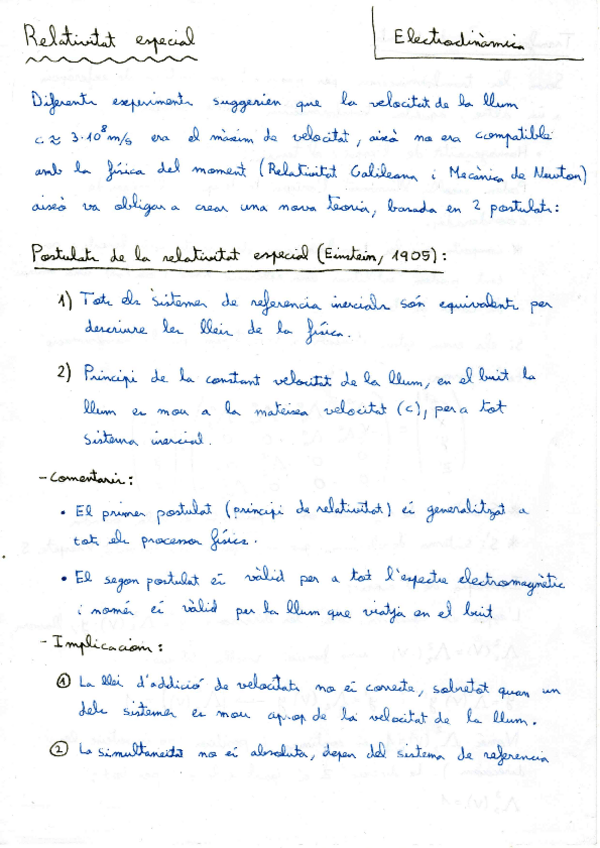 Relativitat especial
Electrodinàmica
Diferents experiments suggerien que la velocitat de la llum
c ≈ 3·10⁸ m/s era el màxim de velocitat, això no era compatible
amb la física del moment (Relativitat Galileana i Mecànica de Newton)
això va obligar a crear una nova teoria, basada en 2 postulats:
Postulats de la relativitat especial (Einstein, 1905):
1) Tots els sistemes de referencia inercials són equivalents per
descriure les lleis de la física.
2) Principi de la constant velocitat de la llum, en el buit la
llum es mou a la mateixa velocitat (c), per a tot
sistema inercial.
- Comentaris:
• El primer postulat (principi de relativitat) és generalitzat a
tots els processos físics.
• El segon postulat és vàlid per a tot l'espectre electromagnètic
i només és vàlid per la llum que viatja en el buit
- Implicacions:
① La llei d'addició de velocitats no és correcte, sobretot quan un
dels sistemes es mou ap.op de la velocitat de la llum.
② La simultaneitat no és absoluta, depen del sistema de referencia